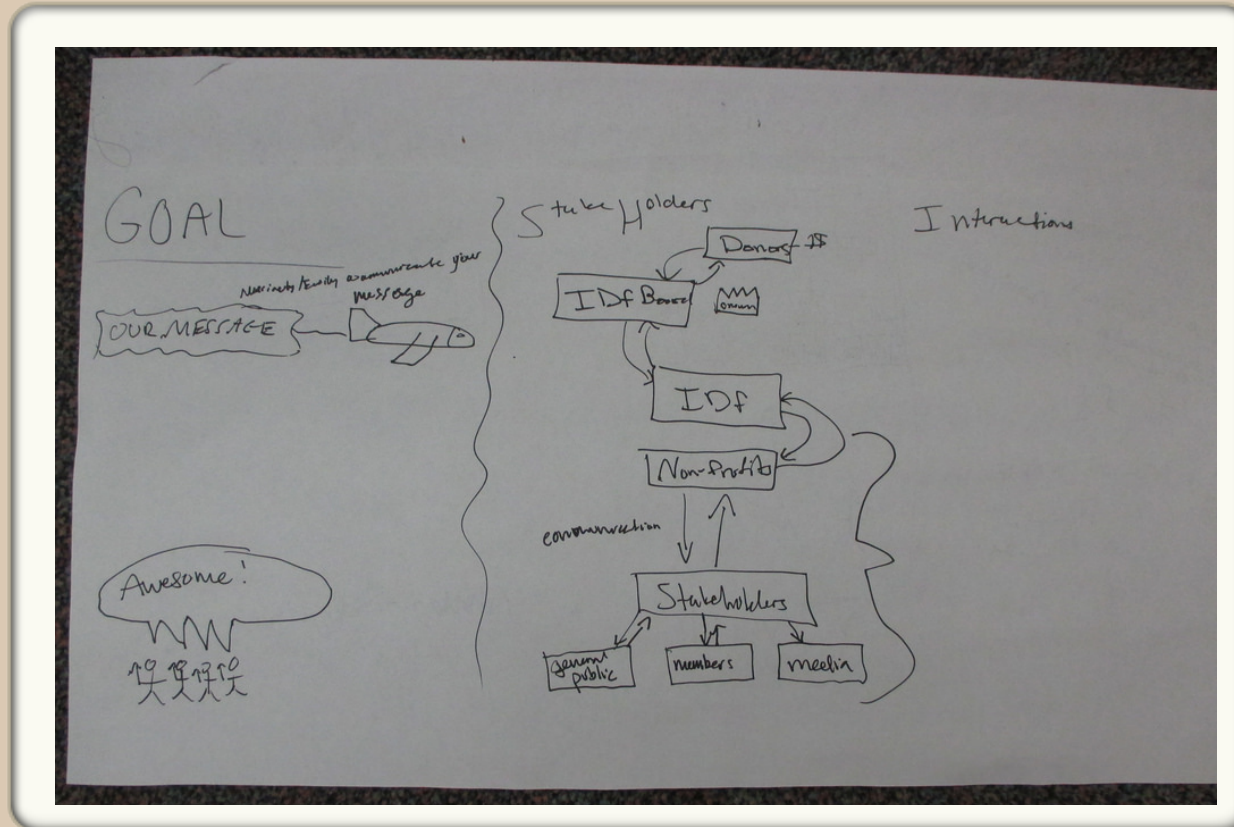 GOAL
communicate your
message
OUR MESSAGE
Awesome!
StakeHolders
Donors
IDf Board
IDf
Non-Profits
communication
Stakeholders
general
public
members
media
Interactions